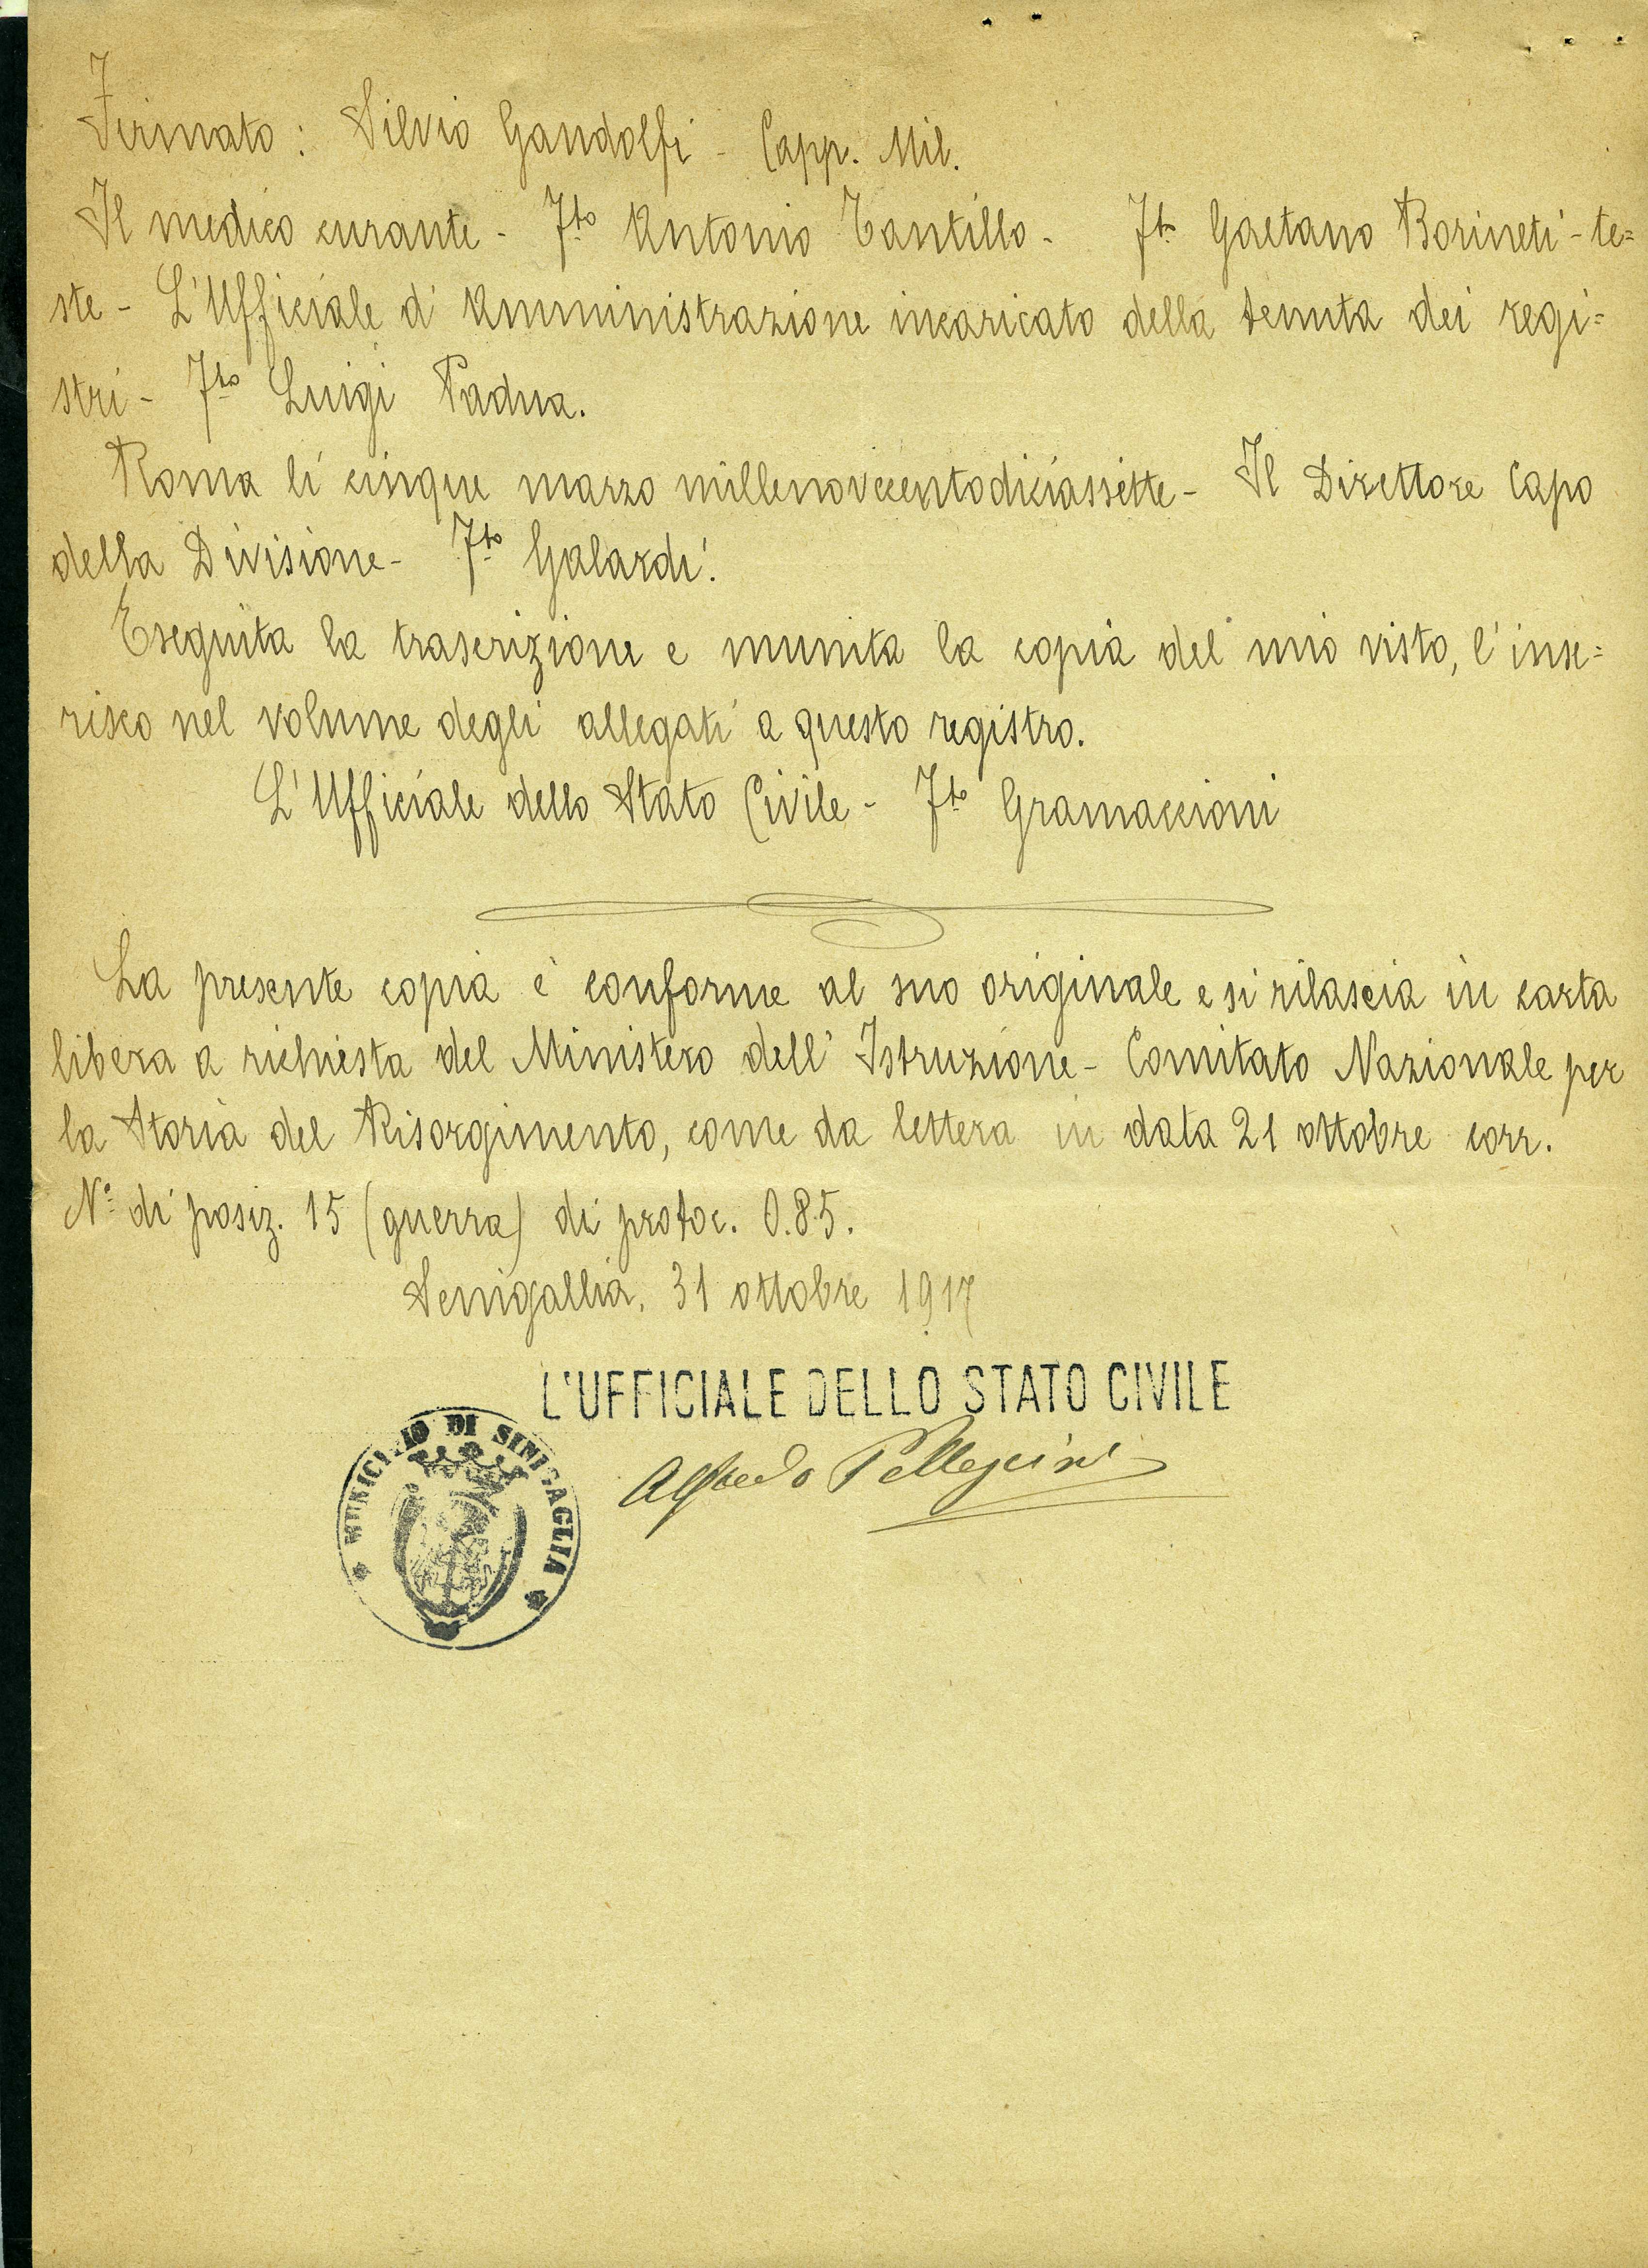 Firmato: Silvio Gandolfi - Capp. Mil.
Il medico curante - Fto Antonio Tantillo - Fto Gaetano Borineti - te=
ste - L'Ufficiale d'Amministrazione incaricato della tenuta dei regi=
stri - Fto Luigi Padua.
Roma li cinque marzo millenovecentodiciassette - Il Direttore Capo
della Divisione - Fto Galardi.
Eseguita la trascrizione e munita la copia del mio visto, l'inse=
risco nel volume degli allegati a questo registro.
L'Ufficiale dello Stato Civile - Fto Gramaccioni
La presente copia è conforme al suo originale e si rilascia in carta
libera a richiesta del Ministero dell'Istruzione - Comitato Nazionale per
la Storia del Risorgimento, come da lettera in data 21 ottobre corr.
N° di posiz. 15 (guerra) di protoc. 0.85.
Senigallia, 31 ottobre 1917
L'UFFICIALE DELLO STATO CIVILE
MUNICIPIO DI SINIGAGLIA
Alfredo Pellegrini